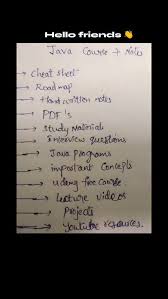 Hello friends 👋
Java Course + Notes
→ Cheat sheet
→ Roadmap
→ Hand written notes
→ PDF's
→ Study Material
→ Interview questions
→ Java programs
→ important Concepts
→ Udemy free Course
→ Lecture videos
→ Projects
→ Youtube resources.